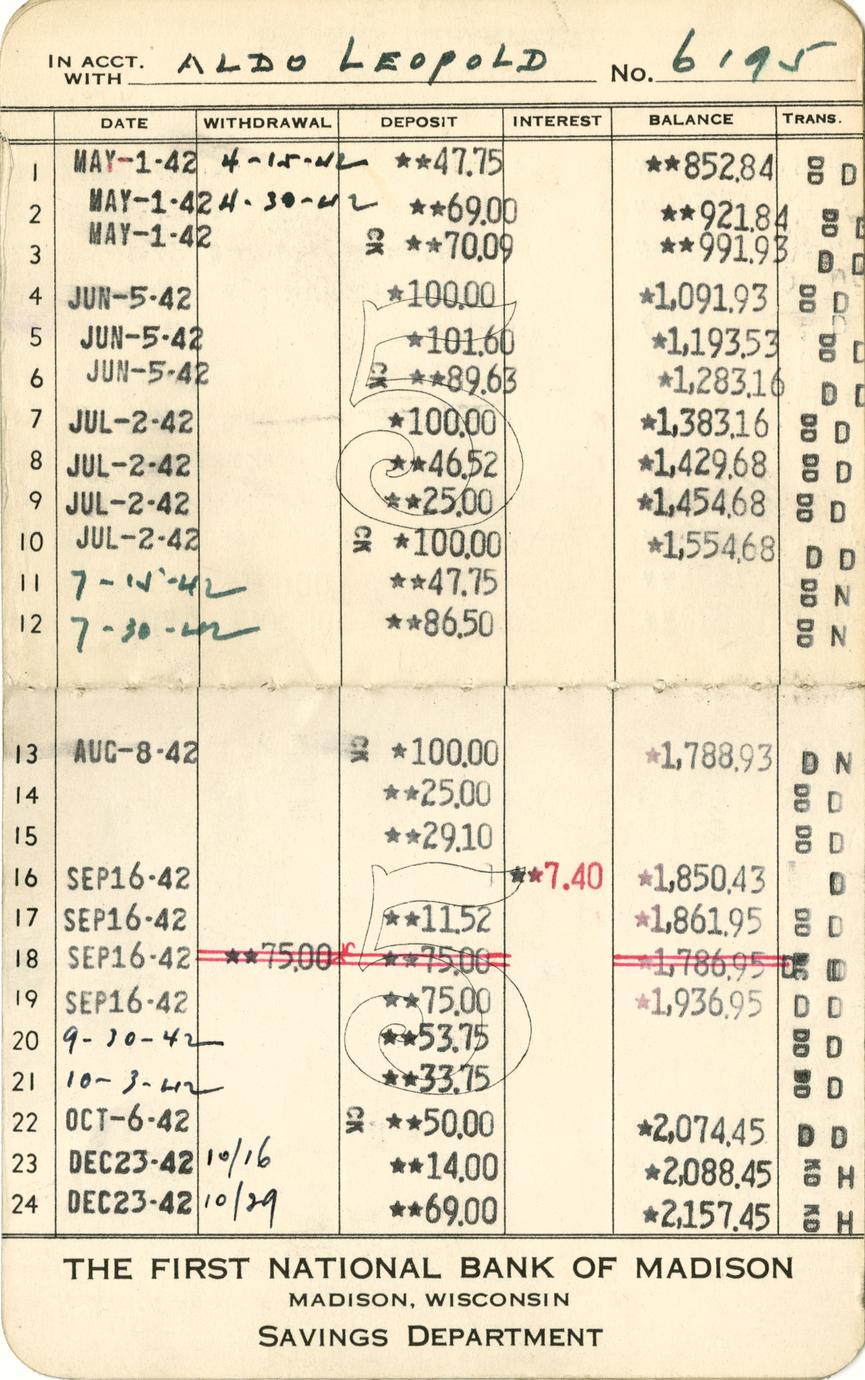 IN ACCT. WITH ALDO LEOPOLD No. 6195
DATE WITHDRAWAL DEPOSIT INTEREST BALANCE TRANS.
1 MAY-1-42 4-15-42 **47.75 **852.84 D
2 MAY-1-42 4-30-42 **69.00 **921.84
3 MAY-1-42 CK **70.09 **991.93 D D
4 JUN-5-42 *100.00 *1,091.93 D
5 JUN-5-42 *101.60 *1,193.53
6 JUN-5-42 CK **89.63 *1,283.16 D
7 JUL-2-42 *100.00 *1,383.16 D
8 JUL-2-42 **46.52 *1,429.68 D
9 JUL-2-42 **25.00 *1,454.68 D
10 JUL-2-42 CK *100.00 *1,554.68 D D
11 7-15-42 **47.75 N
12 7-30-42 **86.50 N
13 AUG-8-42 CK *100.00 *1,788.93 D N
14 **25.00 D
15 **29.10 D
16 SEP16-42 **7.40 *1,850.43 D
17 SEP16-42 **11.52 *1,861.95 D
18 SEP16-42 **75.00 **75.00 *1,786.95
19 SEP16-42 **75.00 *1,936.95 D D
20 9-30-42 **53.75 D
21 10-3-42 **33.75 D
22 OCT-6-42 CK **50.00 *2,074.45 D D
23 DEC23-42 10/16 **14.00 *2,088.45 H
24 DEC23-42 10/29 **69.00 *2,157.45 H
THE FIRST NATIONAL BANK OF MADISON
MADISON, WISCONSIN
SAVINGS DEPARTMENT